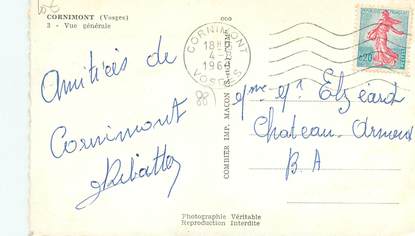 CORNIMONT (Vosges)
3 - Vue générale
Amitiés de
Cornimont
CORNIMONT
18H
4-8
VOSGES
0,20
COMBIER IMP. MACON
Mme Mr Elzéard
Chateau-Arnoux
B A
Photographie Véritable
Reproduction Interdite